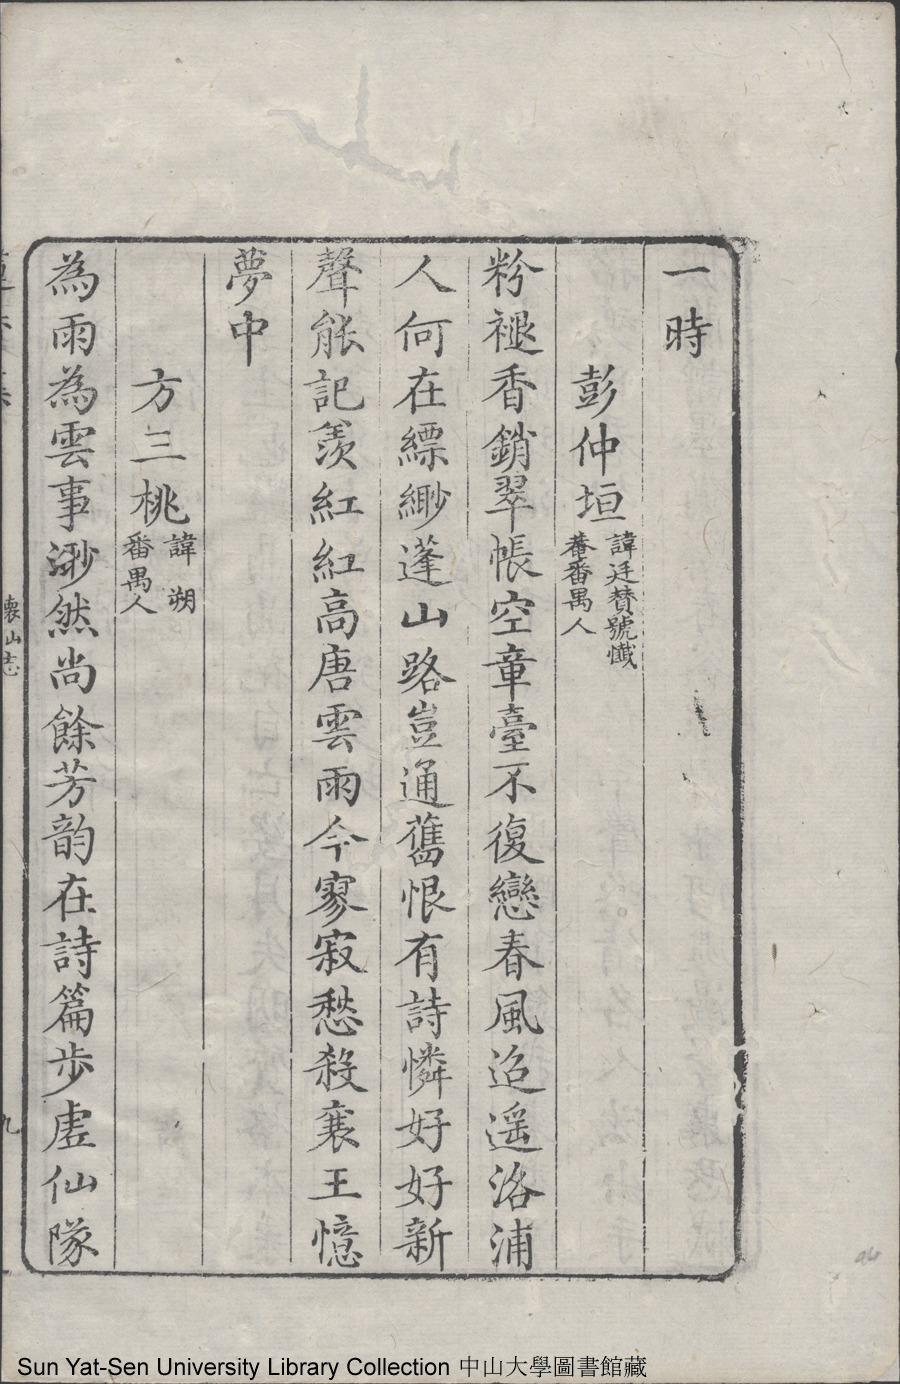 一時
彭仲垣諱廷贊號懺
菴番禺人
粉褪香銷翠帳空章臺不復戀春風迢遥洛浦
人何在縹緲蓬山路豈通舊恨有詩憐好好新
聲能記羨紅紅高唐雲雨今寥寂愁殺襄王憶
夢中
方三桃諱朔
番禺人
為雨為雲事渺然尚餘芳韵在詩篇步虛仙隊
懷山志
九
Sun Yat-Sen University Library Collection 中山大學圖書館藏